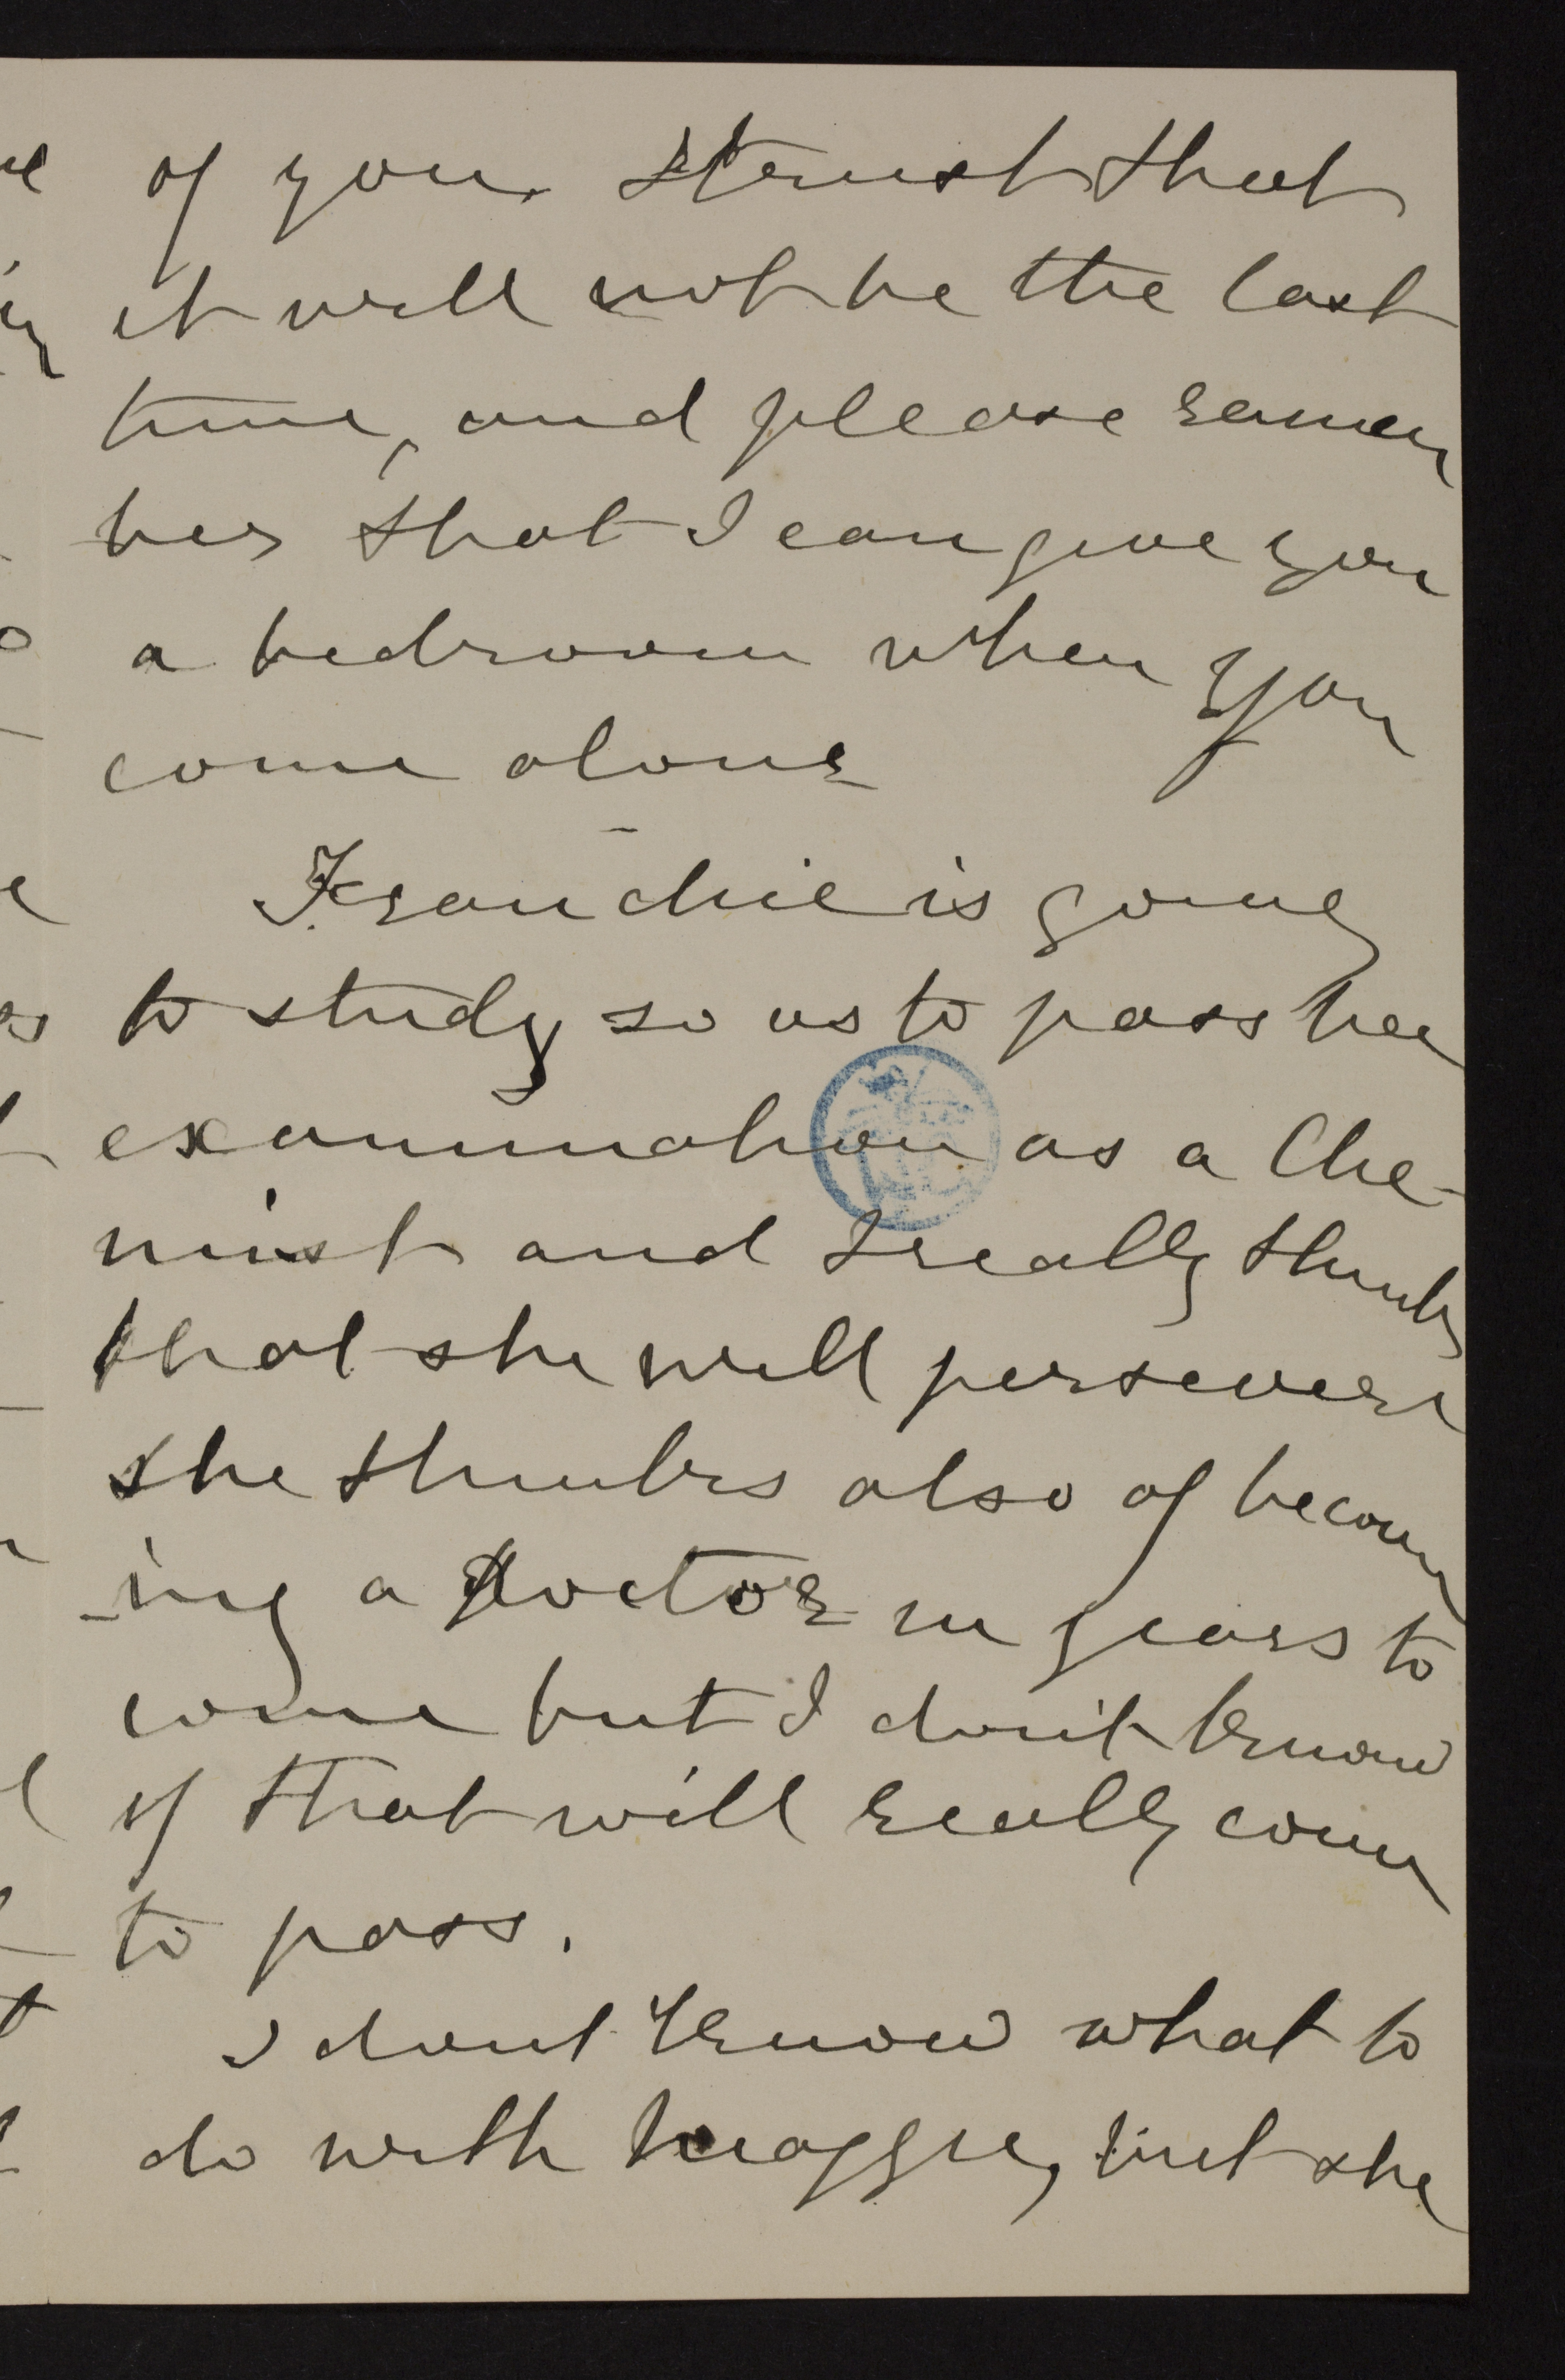 of you. I trust that
it will not be the last
time, and please remem
ber that I can give you
a bedroom when you
come alone
Franchie is going
to study so as to pass her
examination as a Che-
mist and I really think
that she will persevere
she thinks also of becom
-ing a doctor in years to
come but I don't know
if that will really come
to pass.
I dont know what to
do with Maggie, but she